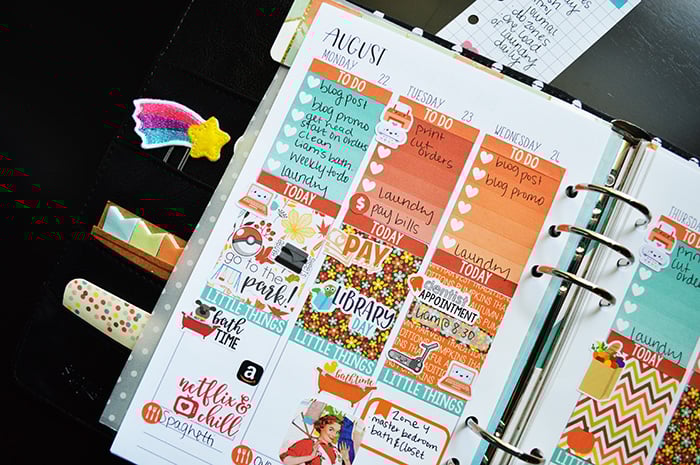 journal
do zones
one load
of laundry
daily
AUGUST
MONDAY 22
TO DO
blog post
blog promo
get head
start on orders
clean
liam's bath.
weekly todo
laundry
TODAY
go to the
park!
LITTLE THINGS
bath
TIME
netflix &
chill
Spaghetti
TUESDAY 23
TO DO
print
cut
orders
laundry
pay bills
TODAY
PAY
LIBRARY
DAY
LITTLE THINGS
bath time
WEDNESDAY 24
TO DO
blog post
blog promo
laundry
TODAY
dentist
APPOINTMENT
liam @ 8:30
LITTLE THINGS
Zone 4
master bedroom
bath & closet
TO DO
print
cut
orders
laundry
TODAY